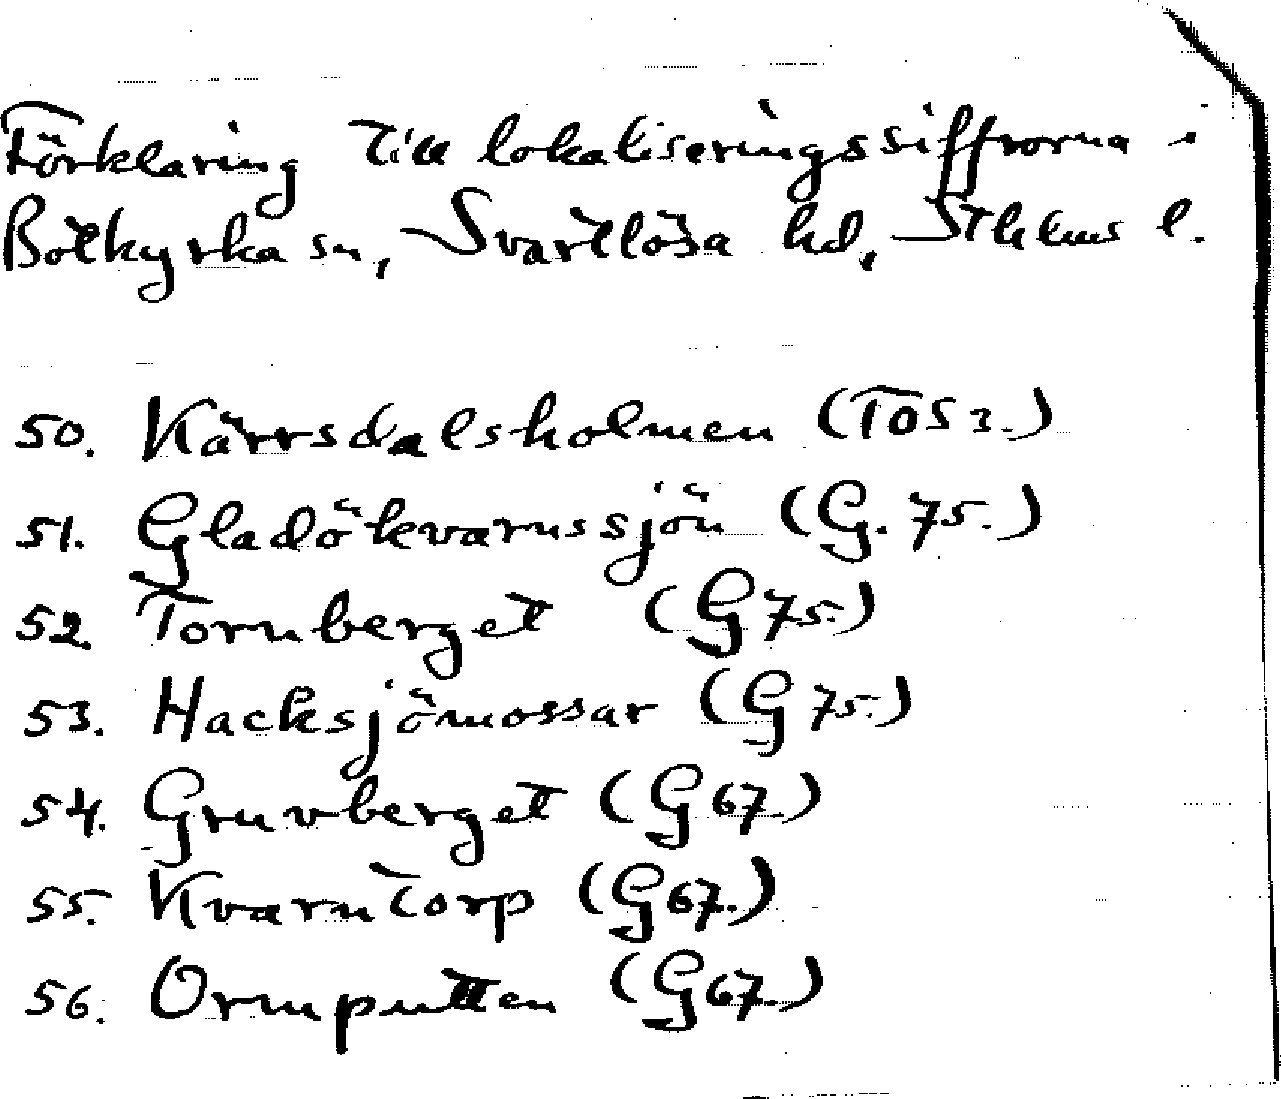 Förklaring till lokaliseringssiffrorna i
Botkyrka sn, Svartlösa hd, Sthlms l.
50. Kärrsdalsholmen (TOS2.)
51. Gladökvarnssjön (G. 75.)
52. Tornberget (G 75.)
53. Hacksjömossar (G 75.)
54. Gruvberget (G 67.)
55. Kvarntorp (G 67.)
56. Ormputten (G 67.)